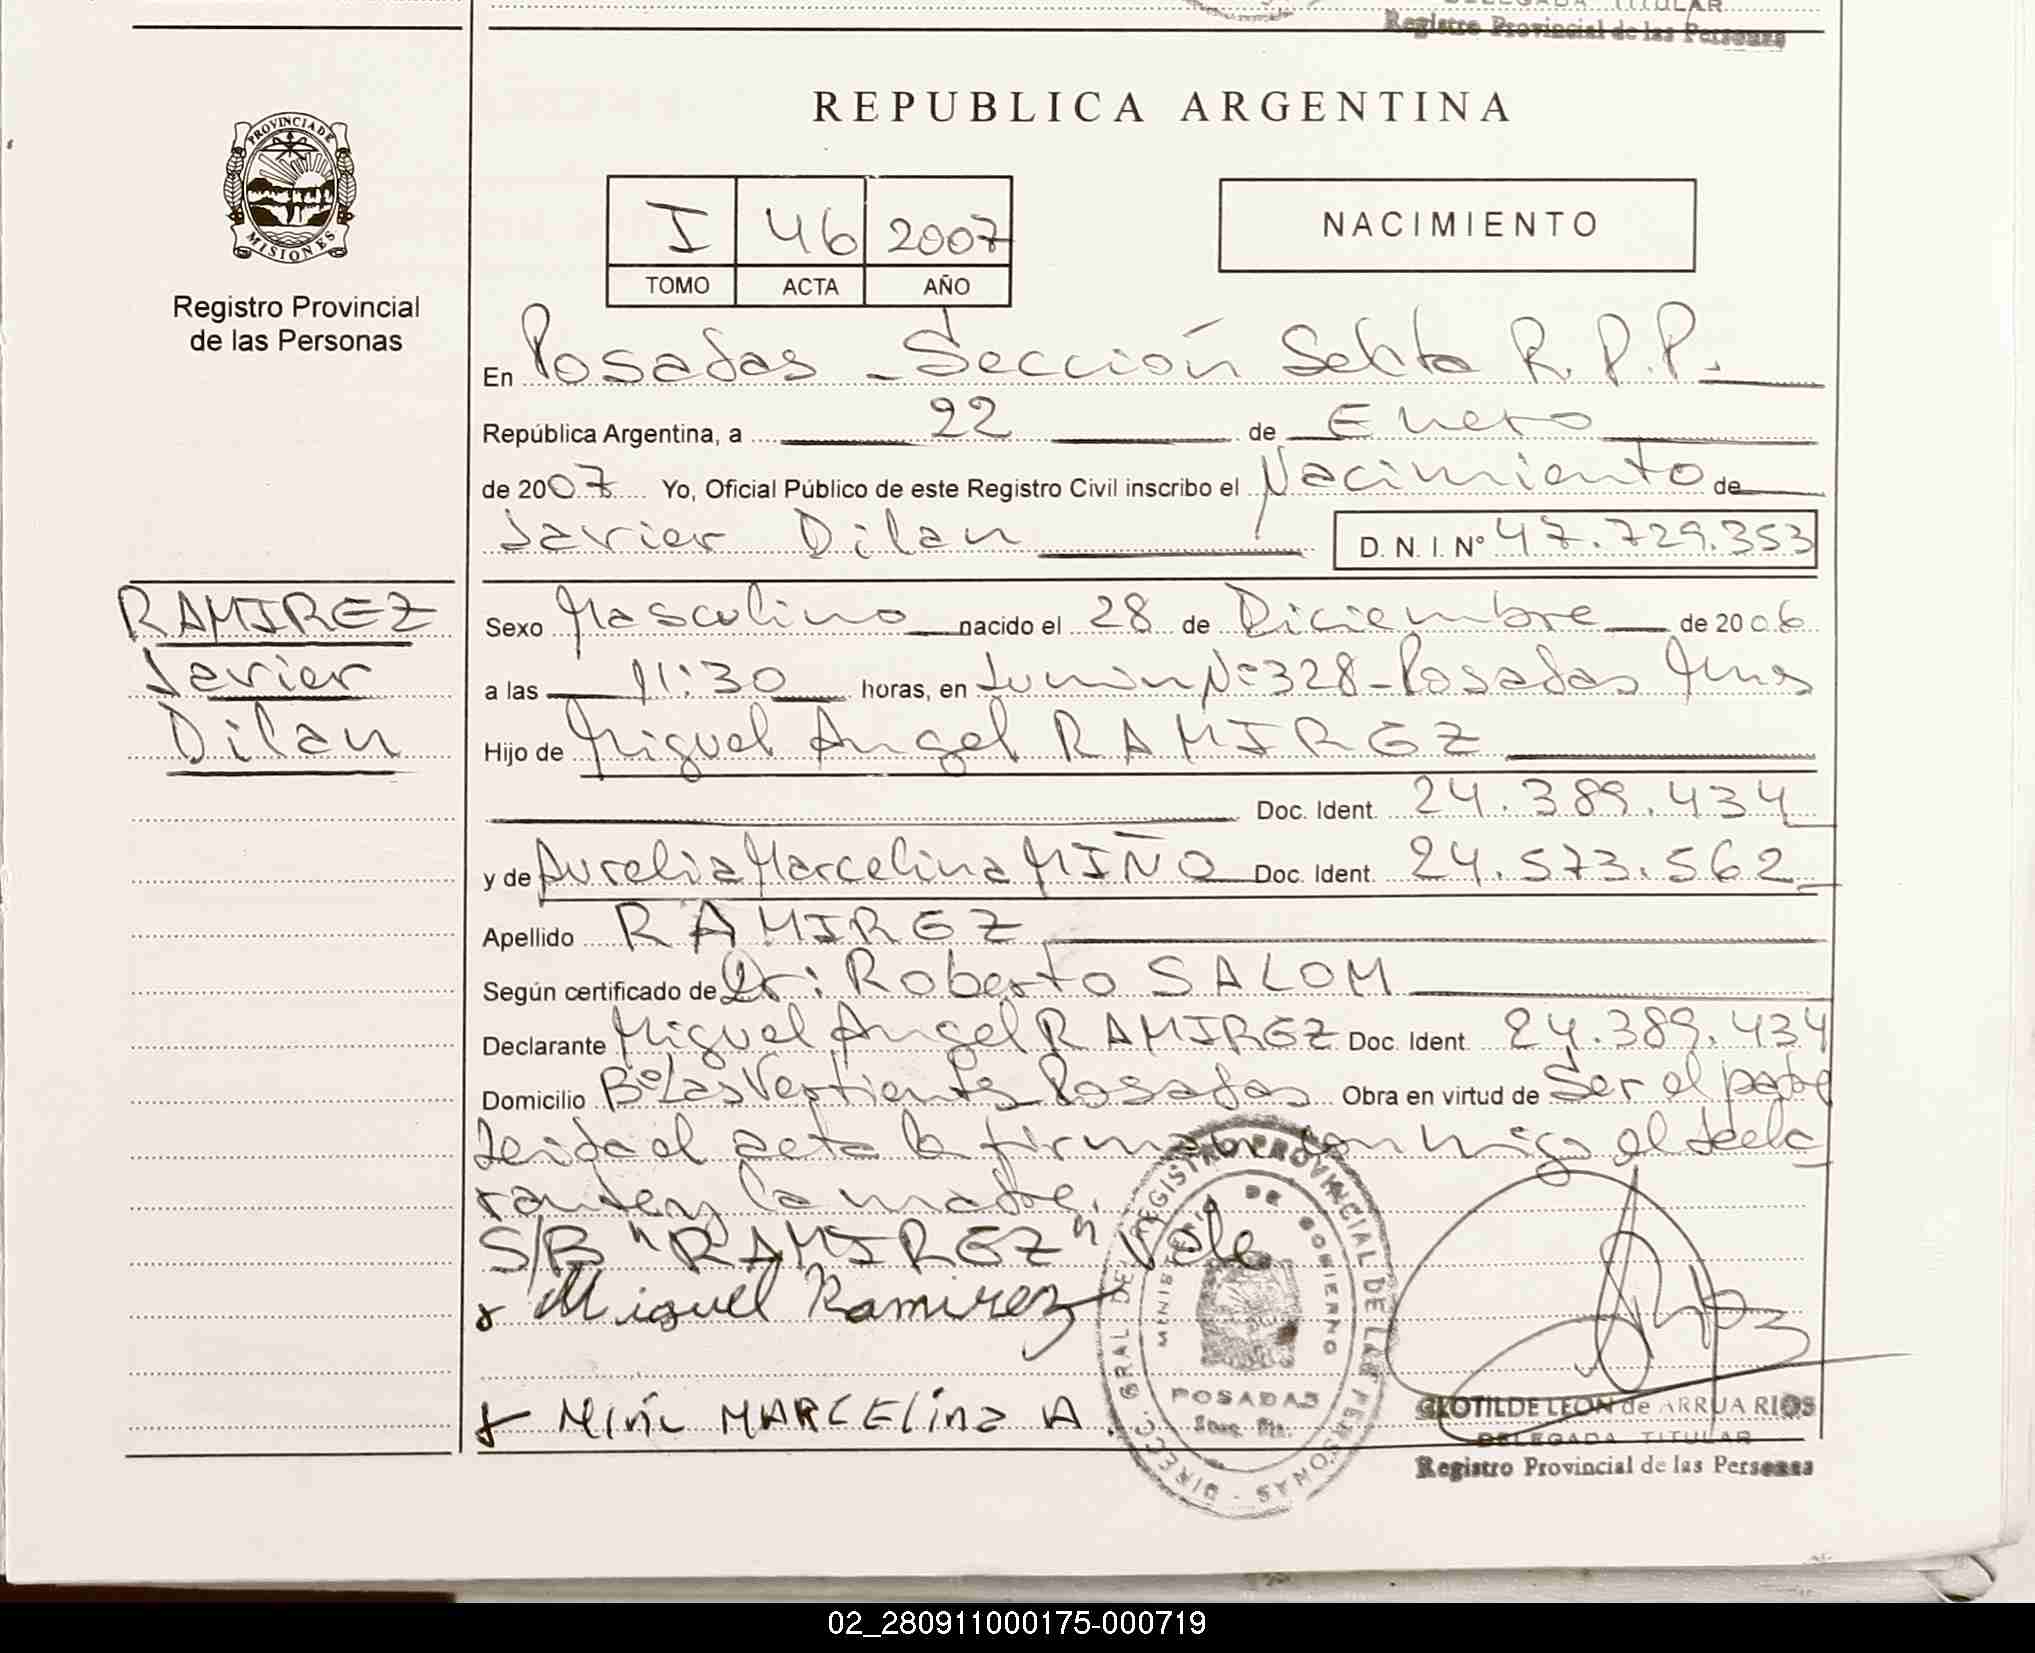 DELEGADA TITULAR
Registro Provincial de las Personas
REPUBLICA ARGENTINA
PROVINCIA DE
MISIONES
Registro Provincial
de las Personas
I 46 2007
TOMO ACTA AÑO
NACIMIENTO
En Posadas - Sección Sexta R.P.P.
República Argentina, a 22 de Enero
de 2007 Yo, Oficial Público de este Registro Civil inscribo el Nacimiento de
Javier Dilan D. N. I. N° 47.729.353
RAMIREZ
Javier
Dilan
Sexo Masculino nacido el 28 de Diciembre de 2006
a las 11:30 horas, en Junin Nº 328 - Posadas Mnes
Hijo de Miguel Angel RAMIREZ
Doc. Ident. 24.389.434
y de Aurelia Marcelina MIÑO Doc. Ident. 24.573.562
Apellido RAMIREZ
Según certificado de Dr: Roberto SALOM
Declarante Miguel Angel RAMIREZ Doc. Ident. 24.389.434
Domicilio Bº Las Vertientes Posadas Obra en virtud de Ser el padre
Leida el acta la firman conmigo el decla
rante y la madre.
S/B "RAMIREZ" Vale
Miguel Ramirez
MARCELINA A.
DIRECC. GRAL DEL REGISTRO PROVINCIAL DE LAS PERSONAS
MINISTERIO DE GOBIERNO
POSADAS
CLOTILDE LEON de ARRUA RIOS
DELEGADA TITULAR
Registro Provincial de las Personas
02_280911000175-000719